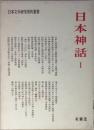 日本文学研究資料叢書
日本神話 I
有精堂